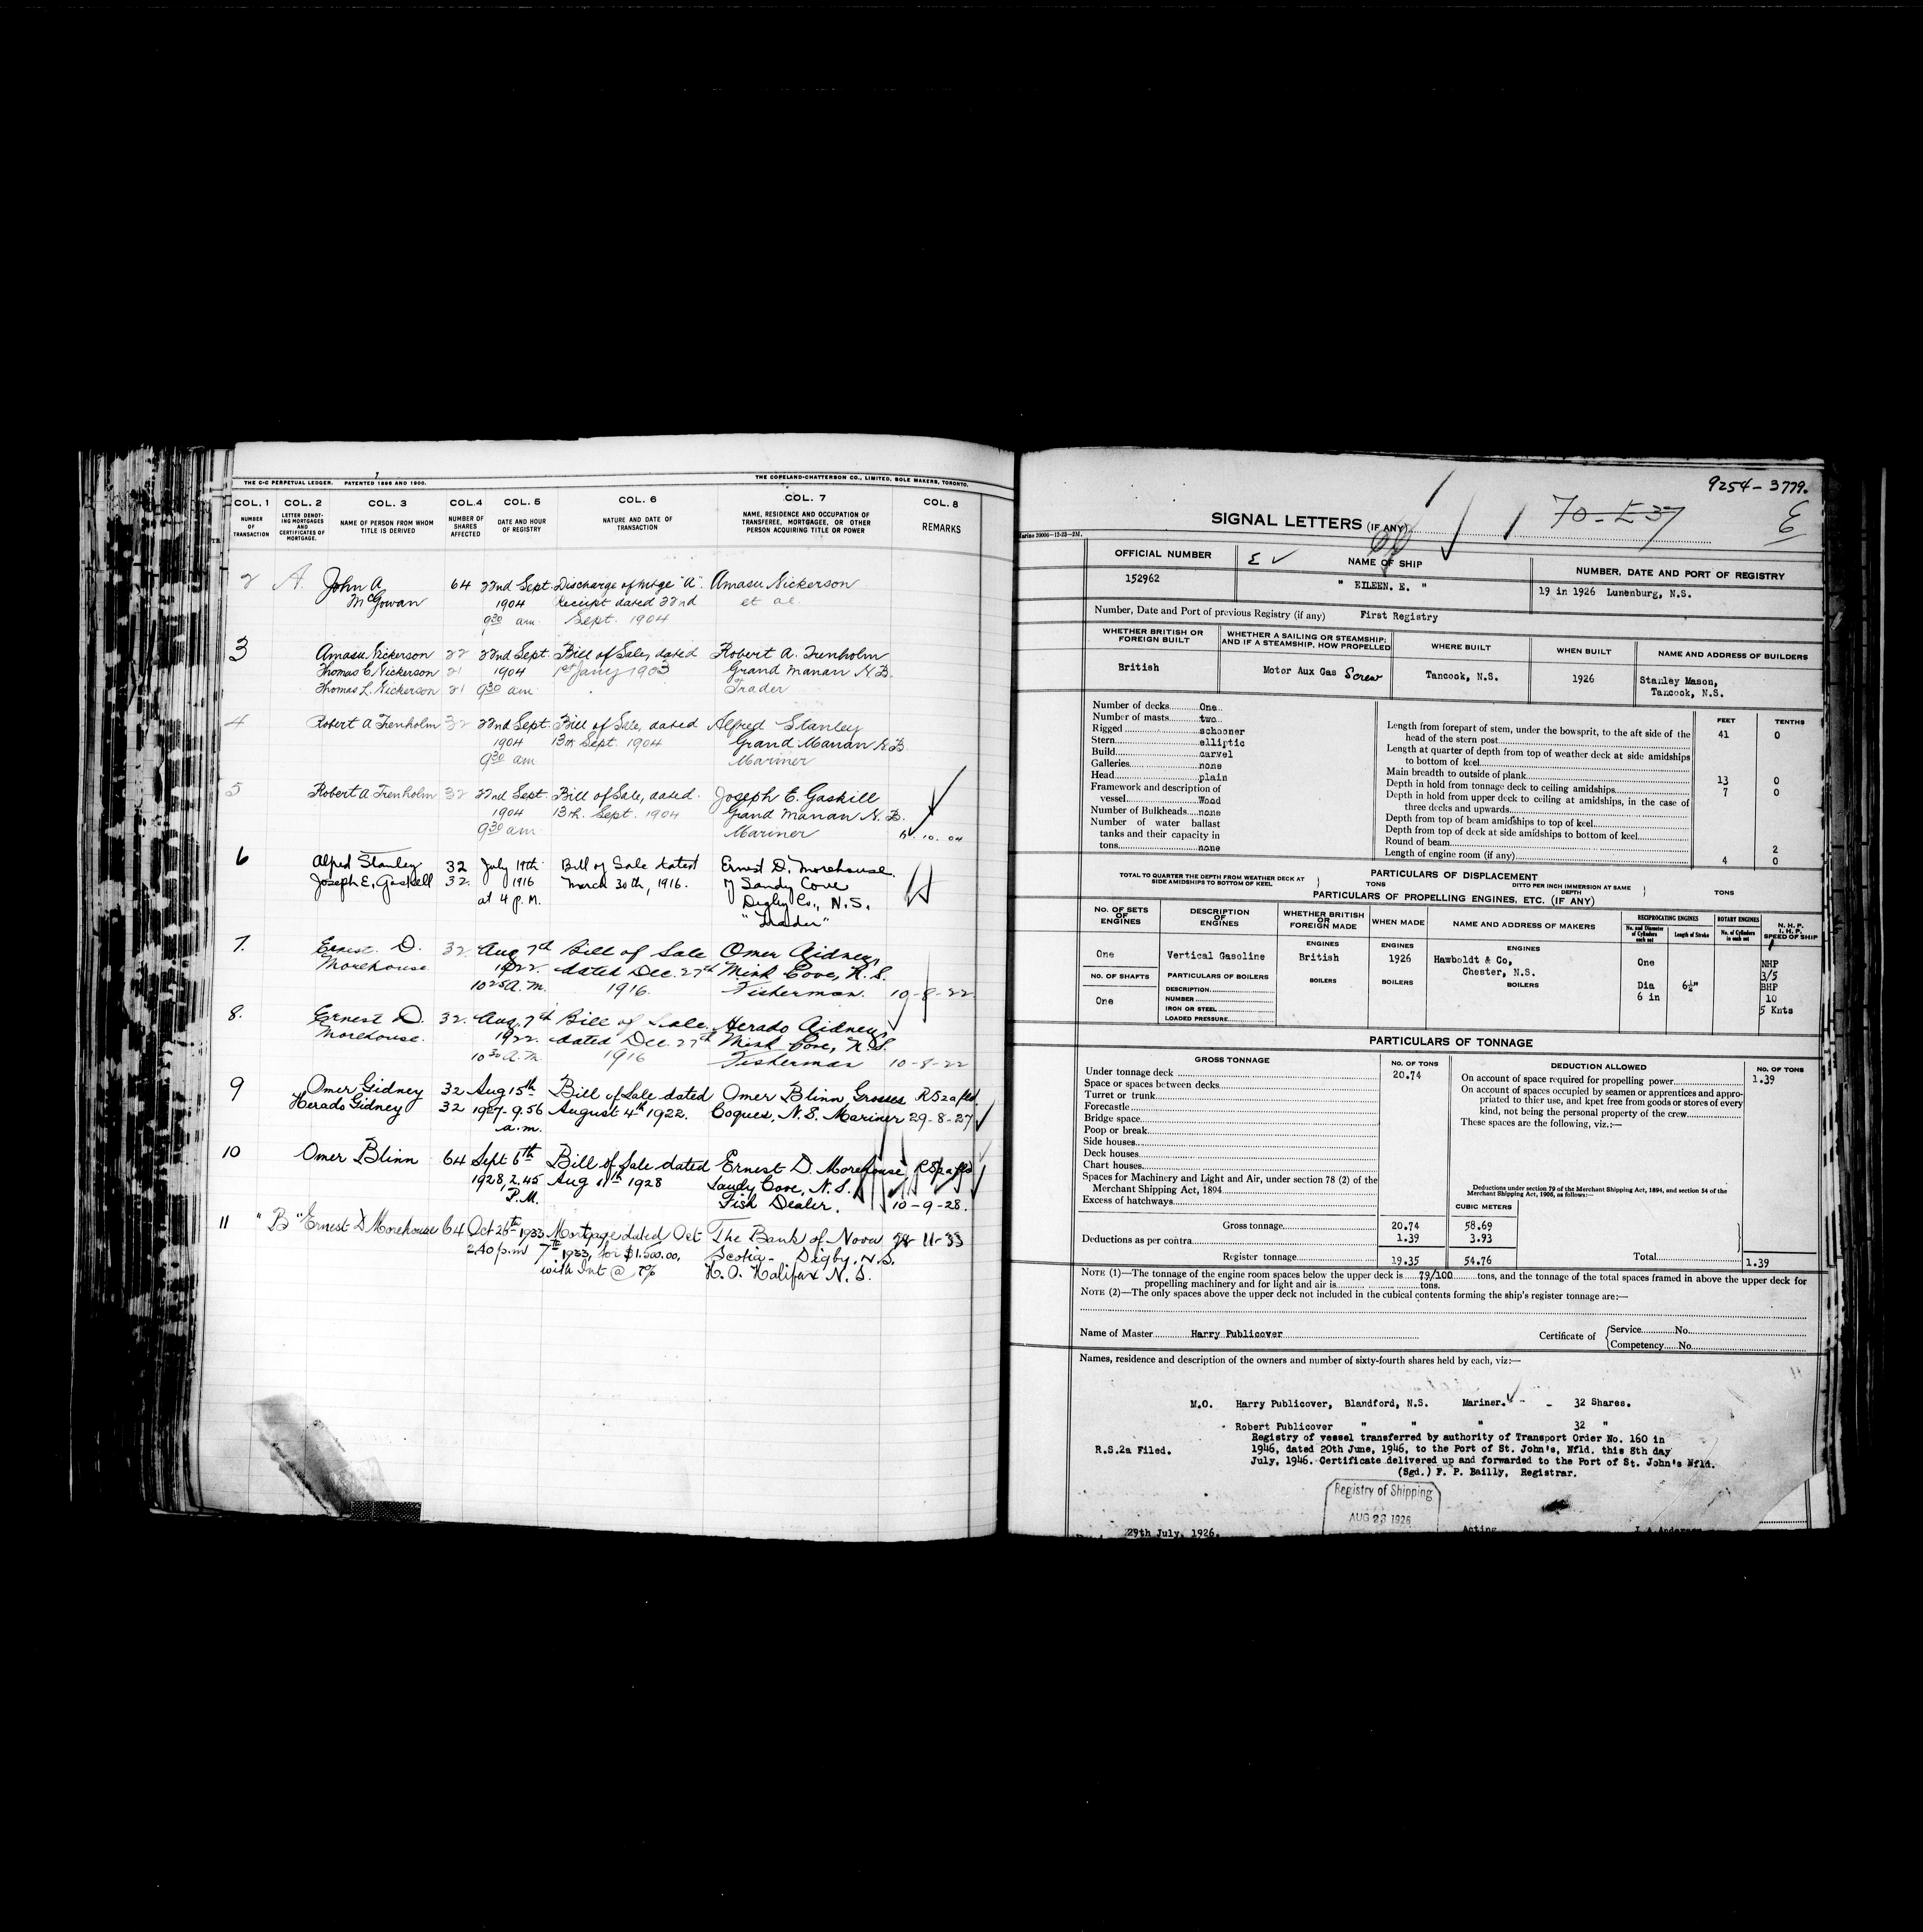 THE C-C PERPETUAL LEDGER. PATENTED 1896 AND 1900.
THE COPELAND-CHATTERSON CO., LIMITED, SOLE MAKERS, TORONTO.
COL. 1 COL. 2 COL. 3 COL. 4 COL. 5 COL. 6 COL. 7 COL. 8
NUMBER OF TRANSACTION
LETTER DENOTING MORTGAGES AND CERTIFICATES OF MORTGAGE.
NAME OF PERSON FROM WHOM TITLE IS DERIVED
NUMBER OF SHARES AFFECTED
DATE AND HOUR OF REGISTRY
NATURE AND DATE OF TRANSACTION
NAME, RESIDENCE AND OCCUPATION OF TRANSFEREE, MORTGAGEE, OR OTHER PERSON ACQUIRING TITLE OR POWER
REMARKS
2 A. John A. 64 22nd Sept. Discharge of mtge "A". Amasu Nickerson
McGowan 1904 Receipt dated 22nd et al.
9 30 am Sept. 1904
3 Amasu Nickerson 22 22nd Sept. Bill of Sale, dated Robert A. Trenholm
Thomas E. Nickerson 21 1904 1st Jany 1903 Grand Manan N.B.
Thomas L. Nickerson 21 9 30 am Trader
4 Robert A Trenholm 32 22nd Sept. Bill of Sale, dated Alfred Stanley
1904 13th Sept. 1904 Grand Manan N.B.
9 30 am Mariner
5 Robert A Trenholm 32 22nd Sept. Bill of Sale, dated Joseph E. Gaskill
1904 13th. Sept. 1904 Grand Manan N.B.
9 30 am Mariner 10. 04
6 Alfred Stanley 32 July 19th Bill of Sale dated Ernest D. Morehouse
Joseph E. Gaskell 32. 1916 March 30th, 1916. of Sandy Cove
at 4 P.M. Digby Co., N.S.
"Trader"
7. Ernest. D. 32. Aug 7th Bill of Sale Omer Gidney,
Morehouse 1922. dated Dec. 27th Mink Cove, N.S.
10 25 A.M. 1916. Fisherman. 10-8-22
8. Ernest D. 32. Aug. 7th Bill of Sale. Herado Gidney
Morehouse. 1922. dated Dec. 27th Mink Cove, N.S.
10 30 A.M. 1916 Fisherman 10-8-22
9 Omer Gidney 32 Aug 15th Bill of Sale dated Omer Blinn Grosses RS2a fld.
Herado Gidney 32 1927-9.56 August 4th 1922. Coques, N.S. Mariner 29-8-27
a.m.
10 Omer Blinn 64 Sept 6th Bill of Sale dated Ernest D. Morehouse RS2a fld
1928, 2.45 Aug 11th 1928 Sandy Cove, N.S.
P.M. Fish Dealer. 10-9-28.
11 "B" Ernest D Morehouse 64 Oct 26th 1933 Mortgage dated Oct The Bank of Nova 28-11-33
2.40 p.m 7th 1933, for $1,500.00, Scotia - Digby, N.S.
with Int @ 7% H.O. Halifax N.S.
9254-3779.
SIGNAL LETTERS (IF ANY) 70-E37 E
Marine 20006-12-25-2M.
OFFICIAL NUMBER E NAME OF SHIP NUMBER, DATE AND PORT OF REGISTRY
152962 " EILEEN. E. " 19 in 1926 Lunenburg, N.S.
Number, Date and Port of previous Registry (if any) First Registry
WHETHER BRITISH OR FOREIGN BUILT
WHETHER A SAILING OR STEAMSHIP; AND IF A STEAMSHIP, HOW PROPELLED
WHERE BUILT
WHEN BUILT
NAME AND ADDRESS OF BUILDERS
British Motor Aux Gas Screw Tancook, N.S. 1926 Stanley Mason,
Tancook, N.S.
Number of decks One
Number of masts two
Rigged schooner
Stern elliptic
Build carvel
Galleries none
Head plain
Framework and description of
vessel Wood
Number of Bulkheads none
Number of water ballast
tanks and their capacity in
tons none
FEET TENTHS
Length from forepart of stem, under the bowsprit, to the aft side of the
head of the stern post 41 0
Length at quarter of depth from top of weather deck at side amidships
to bottom of keel
Main breadth to outside of plank 13 0
Depth in hold from tonnage deck to ceiling amidships 7 0
Depth in hold from upper deck to ceiling at amidships, in the case of
three decks and upwards
Depth from top of beam amidships to top of keel
Depth from top of deck at side amidships to bottom of keel
Round of beam 2
Length of engine room (if any) 4 0
PARTICULARS OF DISPLACEMENT
TOTAL TO QUARTER THE DEPTH FROM WEATHER DECK AT SIDE AMIDSHIPS TO BOTTOM OF KEEL } TONS DITTO PER INCH IMMERSION AT SAME DEPTH } TONS
PARTICULARS OF PROPELLING ENGINES, ETC. (IF ANY)
NO. OF SETS OF ENGINES
DESCRIPTION OF ENGINES
WHETHER BRITISH OR FOREIGN MADE
WHEN MADE
NAME AND ADDRESS OF MAKERS
RECIPROCATING ENGINES
No. and Diameter of Cylinders each set
Length of Stroke
ROTARY ENGINES
No. of Cylinders in each set
N. H. P.
I. H. P.
SPEED OF SHIP
ENGINES ENGINES ENGINES
One Vertical Gasoline British 1926 Hawboldt & Co, One NHP
Chester, N.S. 3/5
NO. OF SHAFTS PARTICULARS OF BOILERS BOILERS BOILERS BOILERS Dia 6½" BHP
One DESCRIPTION 6 in 10
NUMBER 5 Knts
IRON OR STEEL
LOADED PRESSURE
PARTICULARS OF TONNAGE
GROSS TONNAGE NO. OF TONS DEDUCTION ALLOWED NO. OF TONS
Under tonnage deck 20.74
Space or spaces between decks
Turret or trunk
Forecastle
Bridge space
Poop or break
Side houses
Deck houses
Chart houses
Spaces for Machinery and Light and Air, under section 78 (2) of the
Merchant Shipping Act, 1894
Excess of hatchways
On account of space required for propelling power 1.39
On account of spaces occupied by seamen or apprentices and appro-
priated to thier use, and kpet free from goods or stores of every
kind, not being the personal property of the crew
These spaces are the following, viz.:—
Deductions under section 79 of the Merchant Shipping Act, 1894, and section 54 of the
Merchant Shipping Act, 1906, as follows:—
CUBIC METERS
Gross tonnage 20.74 58.69
Deductions as per contra 1.39 3.93
Register tonnage 19.35 54.76 Total 1.39
NOTE (1)—The tonnage of the engine room spaces below the upper deck is 79/100 tons, and the tonnage of the total spaces framed in above the upper deck for
propelling machinery and for light and air is tons.
NOTE (2)—The only spaces above the upper deck not included in the cubical contents forming the ship's register tonnage are:—
Name of Master Harry Publicover Certificate of {Service No.
{Competency No.
Names, residence and description of the owners and number of sixty-fourth shares held by each, viz:—
M.O. Harry Publicover, Blandford, N.S. Mariner. - 32 Shares.
Robert Publicover " " " 32 "
Registry of vessel transferred by authority of Transport Order No. 160 in
R.S.2a Filed. 1946, dated 20th June, 1946, to the Port of St. John's, Nfld. this 8th day
July, 1946. Certificate delivered up and forwarded to the Port of St. John's Nfld.
(Sgd.) F. P. Bailly, Registrar.
Registry of Shipping
AUG 23 1926
29th July, 1926. Acting J.A.Anderson